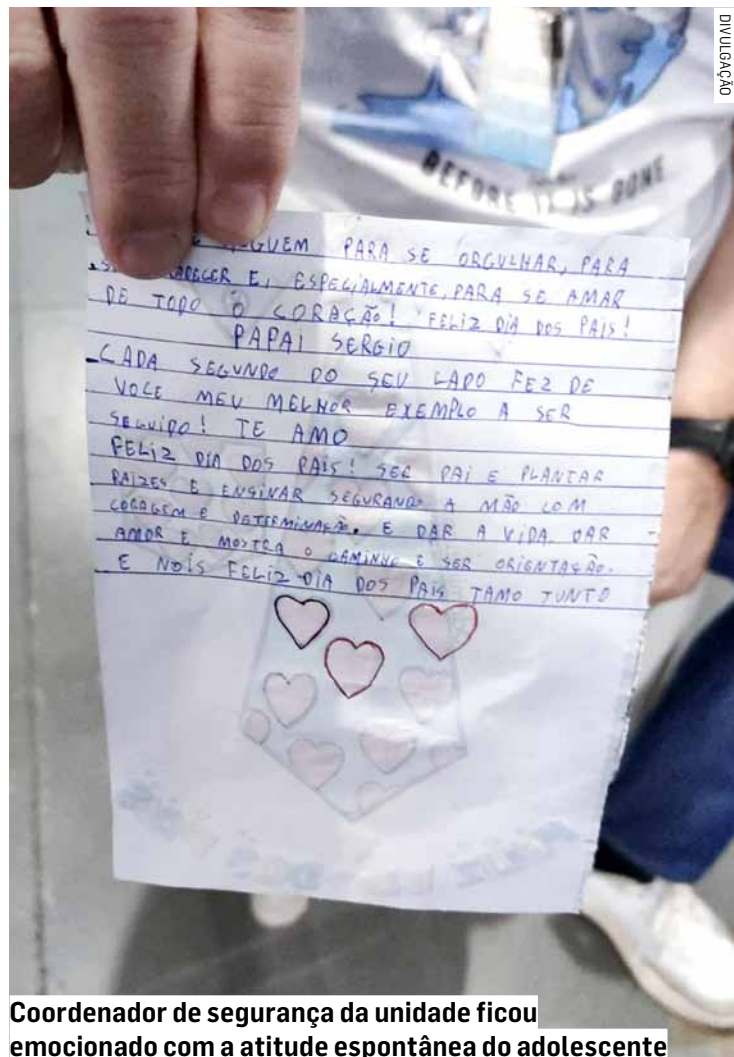 DIVULGAÇÃO
BEFORE IT IS DONE
PARA SE ORGULHAR, PARA
E, ESPECIALMENTE, PARA SE AMAR
DE TODO O CORAÇÃO! FELIZ DIA DOS PAIS!
PAPAI SERGIO
CADA SEGUNDO DO SEU LADO FEZ DE
VOCE MEU MELHOR EXEMPLO A SER
SEGUIDO! TE AMO
FELIZ DIA DOS PAIS! SER PAI E PLANTAR
RAIZES E ENSINAR SEGURANDO A MÃO COM
CORAGEM E DETERMINAÇÃO. E DAR A VIDA DAR
AMOR E MOSTRA O CAMINHO E SER ORIENTAÇÃO.
E NOIS FELIZ DIA DOS PAIS TAMO JUNTO
Coordenador de segurança da unidade ficou
emocionado com a atitude espontânea do adolescente